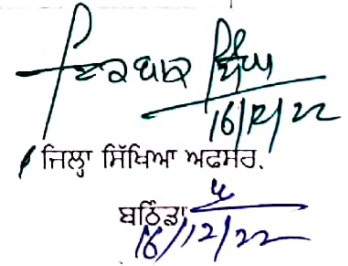 ਇਕਬਾਲ ਸਿੰਘ
16/12/22
ਜਿਲ੍ਹਾ ਸਿੱਖਿਆ ਅਫਸਰ.
ਬਠਿੰਡਾ
16/12/22